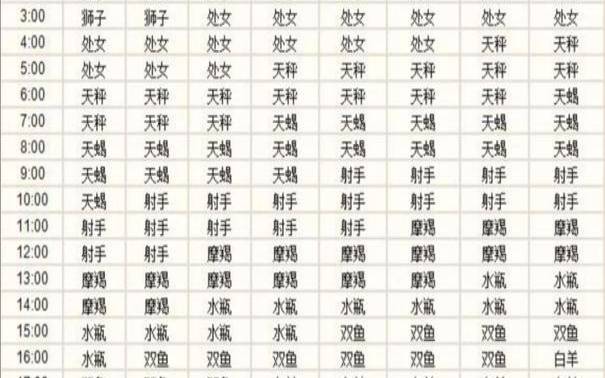 3:00 狮子 狮子 处女 处女 处女 处女 处女
4:00 处女 处女 处女 处女 处女 天秤 天秤
5:00 处女 处女 处女 天秤 天秤 天秤 天秤
6:00 天秤 天秤 天秤 天秤 天秤 天秤 天蝎
7:00 天秤 天秤 天秤 天蝎 天蝎 天蝎 天蝎
8:00 天蝎 天蝎 天蝎 天蝎 天蝎 天蝎 天蝎
9:00 天蝎 天蝎 天蝎 天蝎 射手 射手 射手 射手
10:00 天蝎 射手 射手 射手 射手 射手 射手 射手
11:00 射手 射手 射手 射手 射手 摩羯 摩羯 摩羯
12:00 射手 射手 摩羯 摩羯 摩羯 摩羯 摩羯 摩羯
13:00 摩羯 摩羯 摩羯 摩羯 摩羯 摩羯 水瓶 水瓶
14:00 摩羯 摩羯 水瓶 水瓶 水瓶 水瓶 水瓶 水瓶
15:00 水瓶 水瓶 水瓶 水瓶 双鱼 双鱼 双鱼 双鱼
16:00 水瓶 双鱼 双鱼 双鱼 双鱼 双鱼 双鱼 白羊